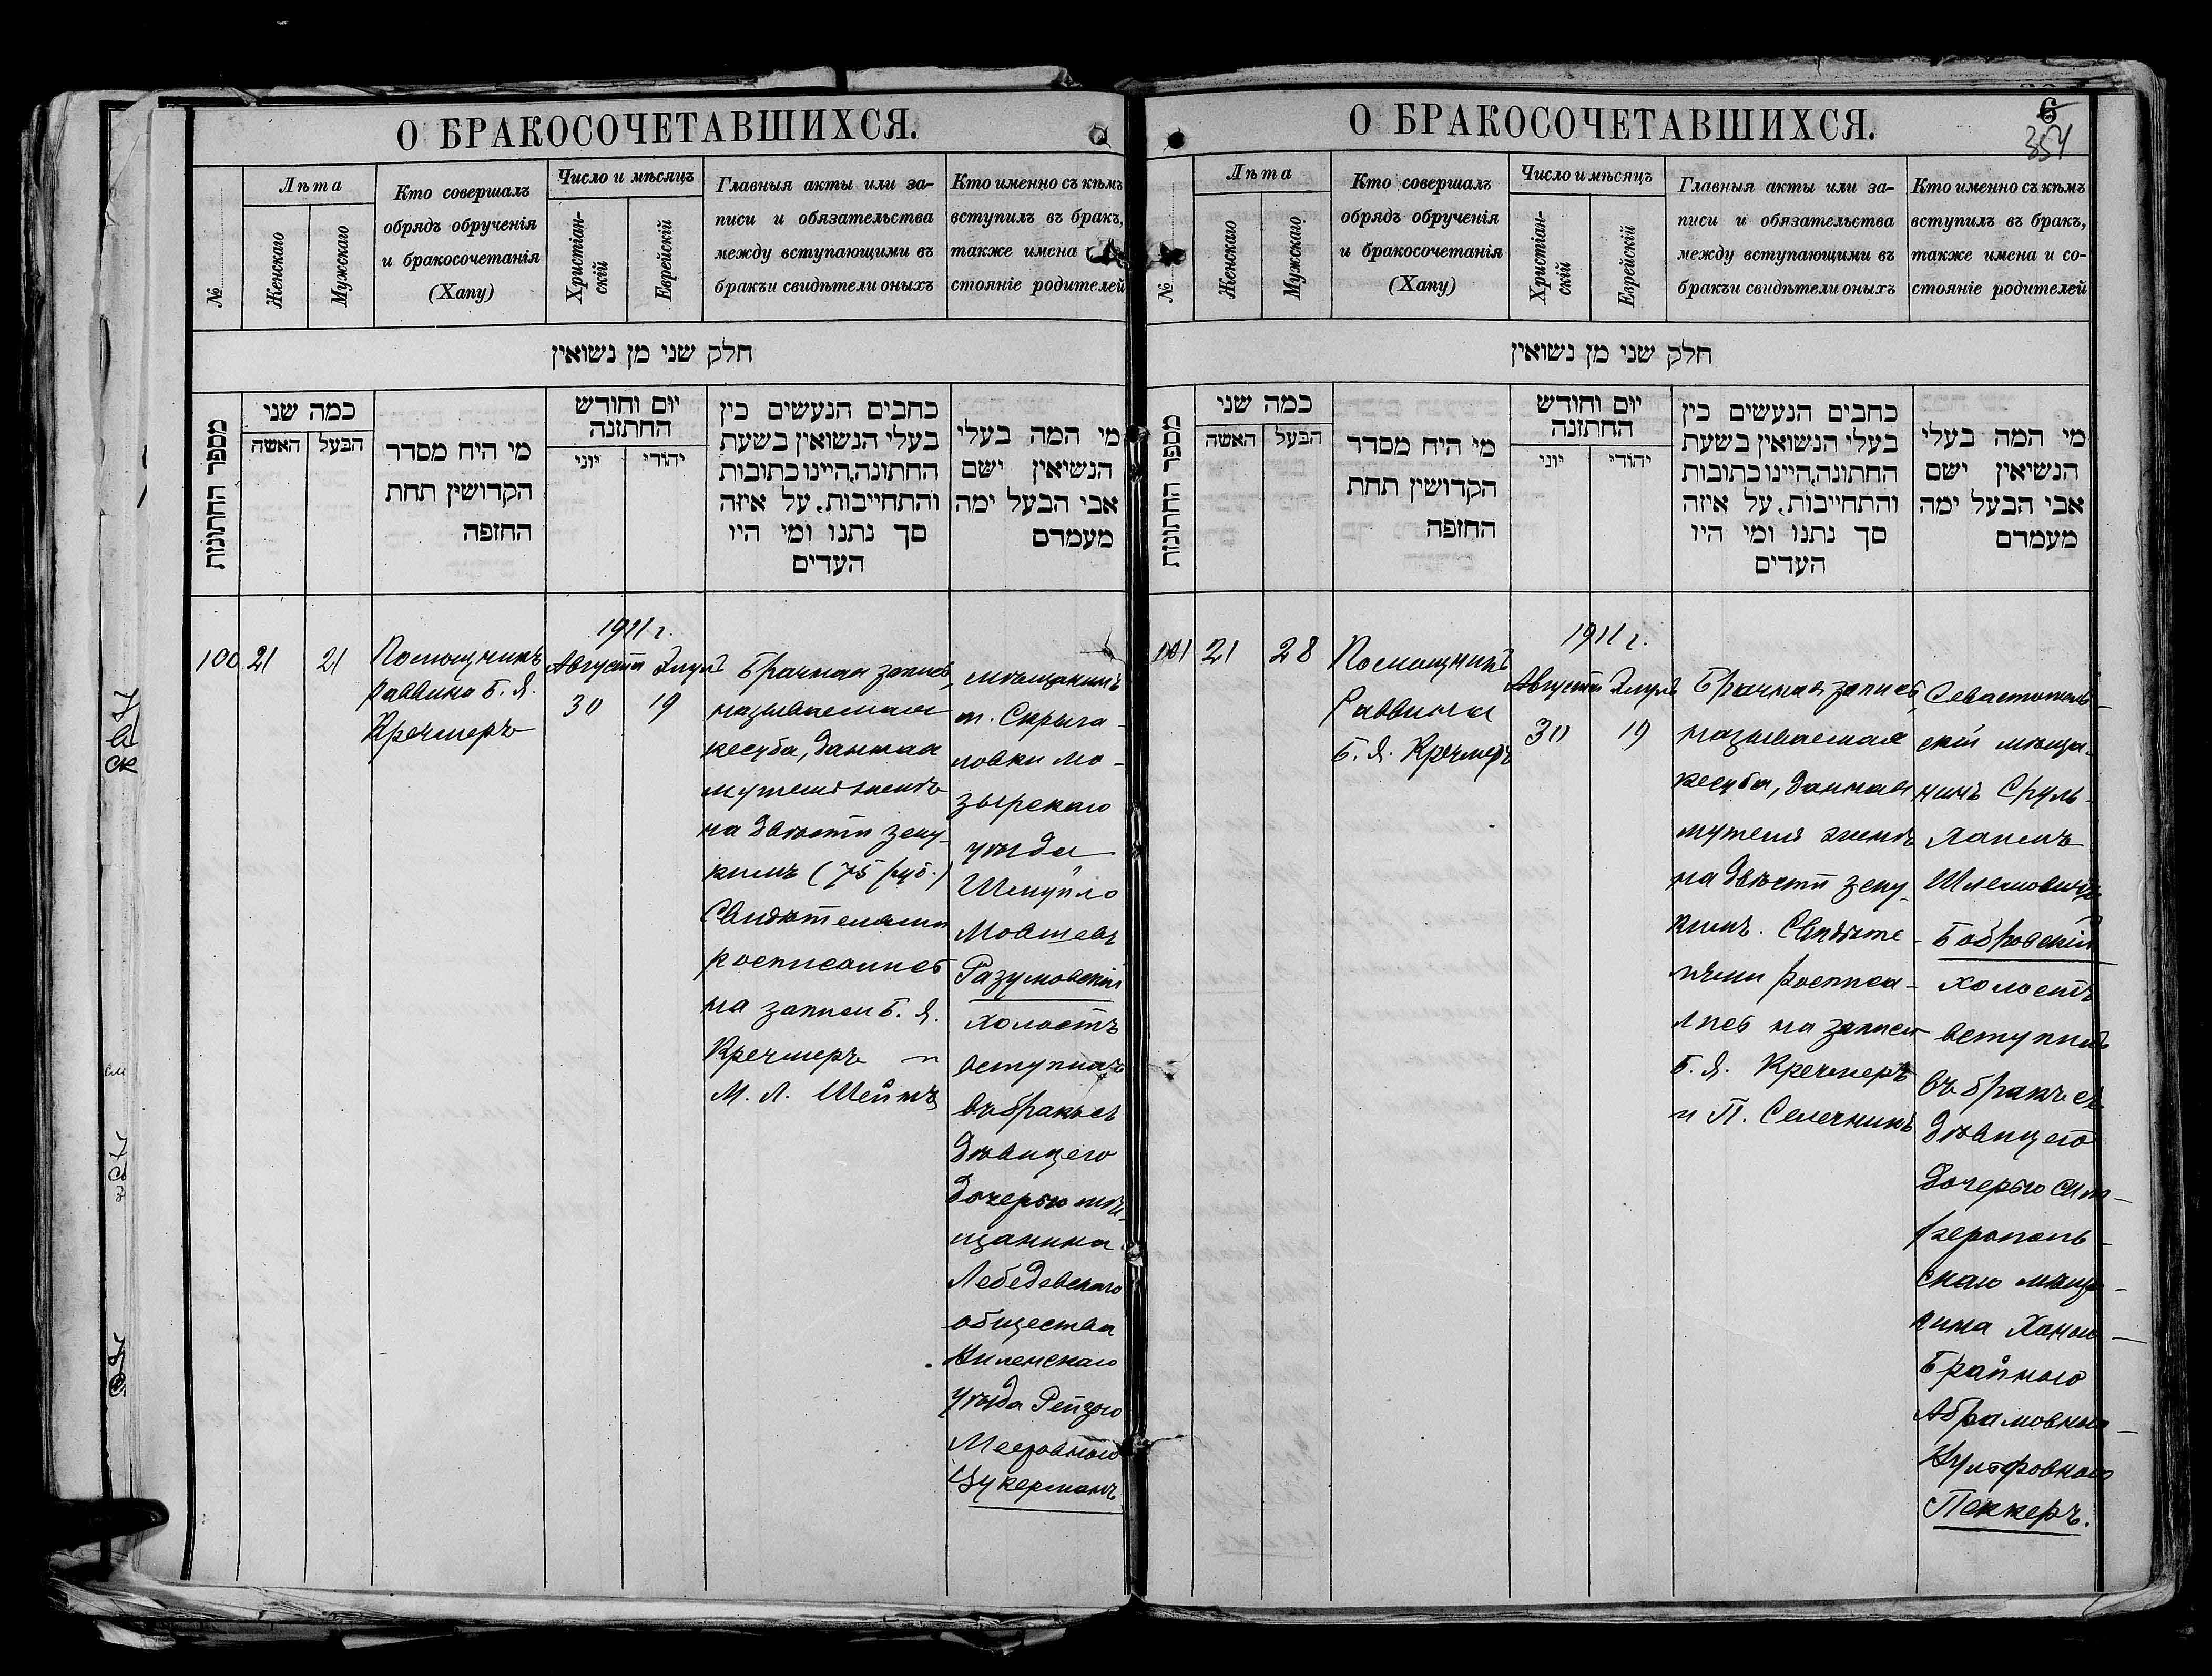 О БРАКОСОЧЕТАВШИХСЯ.
№
Лѣта
Женскаго
Мужскаго
Кто совершалъ
обрядъ обрученія
и бракосочетанія
(Хапу)
Число и мѣсяцъ
Христіан-
скій
Еврейскій
Главныя акты или за-
писи и обязательства
между вступающими въ
бракъи свидѣтели оныхъ
Кто именно съ кѣмъ
вступилъ въ бракъ,
также имена
стояніе родителей
חלק שני מן נשואין
מספר החתונות
כמה שני
האשה
הבעל
מי היח מסדר
הקדושין תחת
החופה
יום וחודש
החתונה
יוני
יהודי
כתבים הנעשים בין
בעלי הנשואין בשעת
החתונה,היינו כתובות
והתחייבות. על איזה
סך נתנו ומי היו
העדים
מי המה בעלי
הנשיאין ישם
אבי הבעל ימה
מעמדם
100
21
21
Помощникъ
раввина Б. Я.
Кречмеръ
1911 г.
Августа Элулъ
30 19
Брачная запись,
называемая
кесуба, данная
мужемъ женѣ
на двѣсти зену-
кимъ (75 руб.)
Свидѣтелями
росписались
на записи Б. Я.
Кречмеръ и
М. Л. Шейнъ
мѣщанинъ
м. Скрыга-
ловки Мо-
зырскаго
уѣзда
Шмуйло
Мовшевъ
Разумовскій
холостъ
вступилъ
въ бракъ съ
дѣвицею
дочерью мѣ-
щанина
Лебедевскаго
общества
Виленскаго
уѣзда Рейзою
Мееровною
Цукерманъ
О БРАКОСОЧЕТАВШИХСЯ.
6
354
№
Лѣта
Женскаго
Мужскаго
Кто совершалъ
обрядъ обрученія
и бракосочетанія
(Хапу)
Число и мѣсяцъ
Христіан-
скій
Еврейскій
Главныя акты или за-
писи и обязательства
между вступающими въ
бракъи свидѣтели оныхъ
Кто именно съ кѣмъ
вступилъ въ бракъ,
также имена и со-
стояніе родителей
חלק שני מן נשואין
מספר החתונות
כמה שני
האשה
הבעל
מי היח מסדר
הקדושין תחת
החופה
יום וחודש
החתונה
יוני
יהודי
כתבים הנעשים בין
בעלי הנשואין בשעת
החתונה,היינו כתובות
והתחייבות. על איזה
סך נתנו ומי היו
העדים
מי המה בעלי
הנשיאין ישם
אבי הבעל ימה
מעמדם
101
21
28
Помощникъ
Раввина
Б. Я. Кречмеръ
1911 г.
Августа Элулъ
30 19
Брачная запись,
называемая
кесуба, данная
мужемъ женѣ
на двѣсти зену-
кимъ. Свидѣте-
лями росписа-
лись на записи
Б. Я. Кречмеръ
и П. Селечникъ
Севастополь-
скій мѣща-
нинъ Сруль-
Хаимъ
Шлемовичъ
Бобровскій
холостъ
вступилъ
въ бракъ съ
дѣвицею
дочерью Сим-
ферополь-
скаго мѣща-
нина Ханою-
Брайною
Абрамовною-
Вульфовною
Пеккеръ.